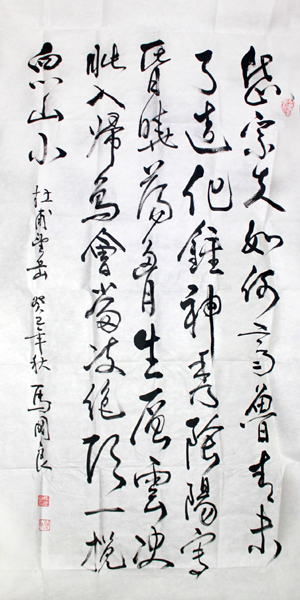 岱宗夫如何齊魯青未
了造化鍾神秀陰陽割
昏曉蕩胸生層雲決
眥入歸鳥會當凌絕頂一覽
眾山小 杜甫望岳 癸巳年秋 馬國良